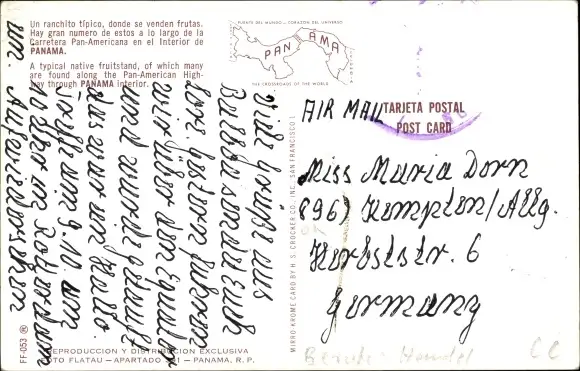 Un ranchito típico, donde se venden frutas.
Hay gran numero de estos a lo largo de la
Carretera Pan-Americana en el Interior de
PANAMA.
A typical native fruitstand, of which many
are found along the Pan-American High-
way through PANAMA interior.
PUENTE DEL MUNDO - CORAZON DEL UNIVERSO
PANAMA
THE CROSSROADS OF THE WORLD
AIR MAIL
TARJETA POSTAL
POST CARD
Miss Maria Dorn
8961 Kempten/Allg.
Herbststr. 6
Germany
Viele Grüße aus
sind wir
Gestern fuhren
wir über den Equator
und wurde getauft
das war ein
am 9.10. um
in Rotterdam
um. Aufwiedersehen
MIRRO-KROME CARD BY H. S. CROCKER CO., INC., SAN FRANCISCO 1
FF-053 ®
REPRODUCCION Y DISTRIBUCION EXCLUSIVA
FOTO FLATAU - APARTADO - PANAMA, R. P.
CC